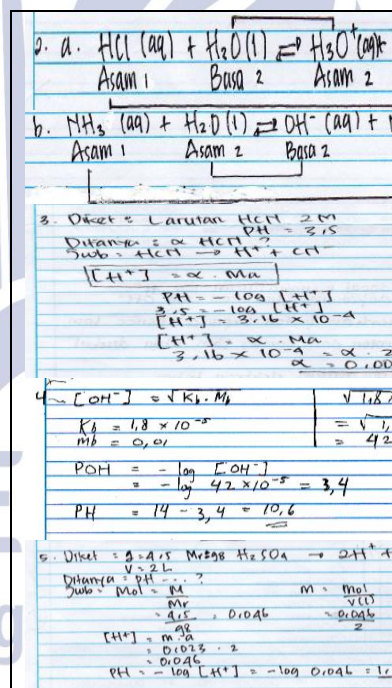 2. a. HCl (aq) + H₂O (l) ⇌ H₃O⁺ (aq) +
Asam 1 Basa 2 Asam 2
b. NH₃ (aq) + H₂O (l) ⇌ OH⁻ (aq) +
Asam 1 Asam 2 Basa 2
3. Diket : Larutan HCN 2M
PH = 3,5
Ditanya : α HCN ?
Jwb : HCN → H⁺ + CN⁻
[H⁺] = α . Ma
PH = - log [H⁺]
3,5 = - log [H⁺]
[H⁺] = 3,16 × 10⁻⁴
[H⁺] = α . Ma
3,16 × 10⁻⁴ = α . 2
α = 0,00
4. [OH⁻] = √Kb . Mb √1,8 ×
Kb = 1,8 × 10⁻⁵ = √1,
Mb = 0,01 = 42
POH = - log [OH⁻]
= - log 42 × 10⁻⁵ = 3,4
PH = 14 - 3,4 = 10,6
5. Diket : g = 4,5 Mr = 98 H₂SO₄ → 2H⁺ +
V = 2L
Ditanya : PH ... ?
Jwb : Mol = M M = mol
Mr V(l)
= 4,5 = 0,046 = 0,046
98 2
[H⁺] = m . a
= 0,023 . 2
= 0,046
PH = - log [H⁺] = - log 0,046 = 1,